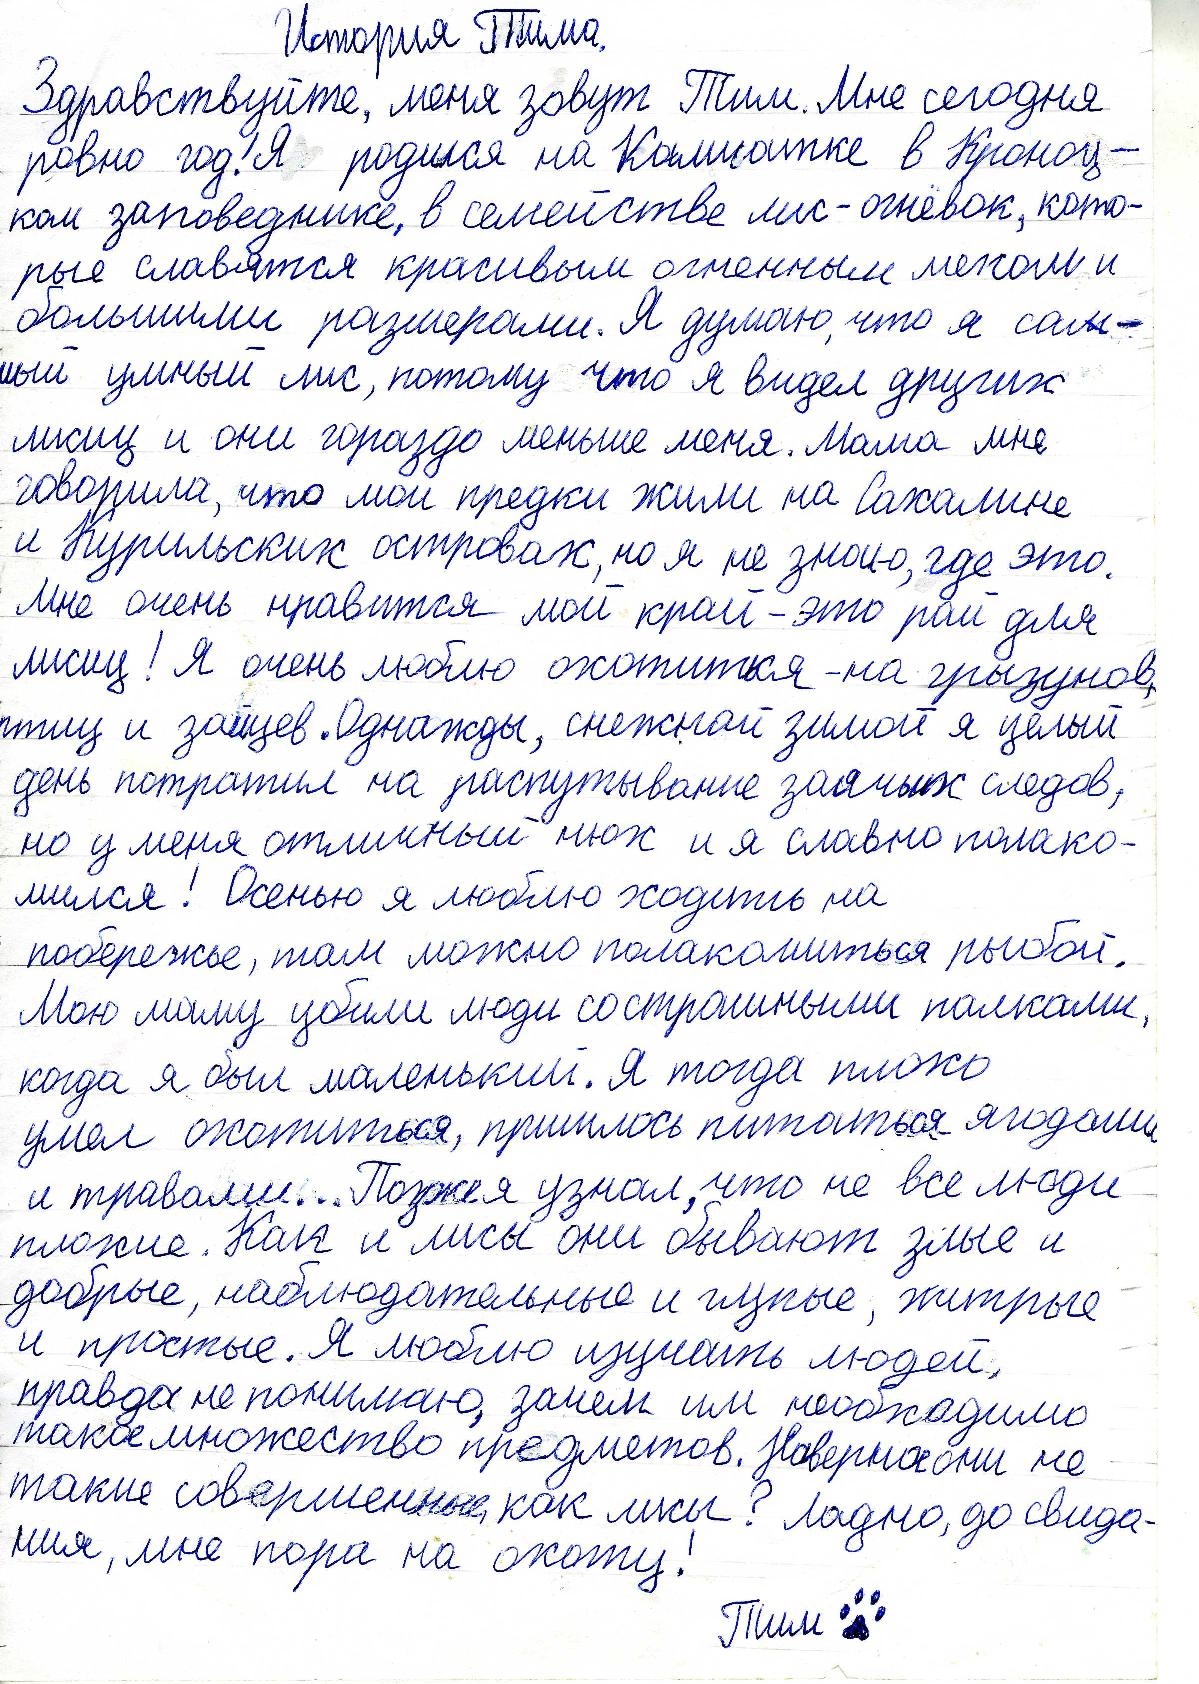 История Тима.
Здравствуйте, меня зовут Тим. Мне сегодня
ровно год! Я родился на Камчатке в Кроноц-
ком заповеднике, в семействе лис-огнёвок, кото-
рые славятся красивым огненным мехом и
большими размерами. Я думаю, что я сам-
мый умный лис, потому что я видел других
лисиц и они гораздо меньше меня. Мама мне
говорила, что мои предки жили на Сахалине
и Курильских островах, но я не знаю, где это.
Мне очень нравится мой край - это рай для
лисиц! Я очень люблю охотиться - на грызунов,
птиц и зайцев. Однажды, снежной зимой я целый
день потратил на распутывание заячьих следов,
но у меня отличный нюх и я славно полако-
мился! Осенью я люблю ходить на
побережье, там можно полакомиться рыбой.
Мою маму убили люди со страшными палками,
когда я был маленький. Я тогда плохо
умел охотиться, пришлось питаться ягодами
и травами... Позже я узнал, что не все люди
плохие. Как и лисы они бывают злые и
добрые, наблюдательные и глупые, хитрые
и простые. Я люблю изучать людей,
правда не понимаю, зачем им необходимо
такое множество предметов. Наверное они не
такие совершенные, как лисы? Ладно, до свида-
ния, мне пора на охоту!
Тим